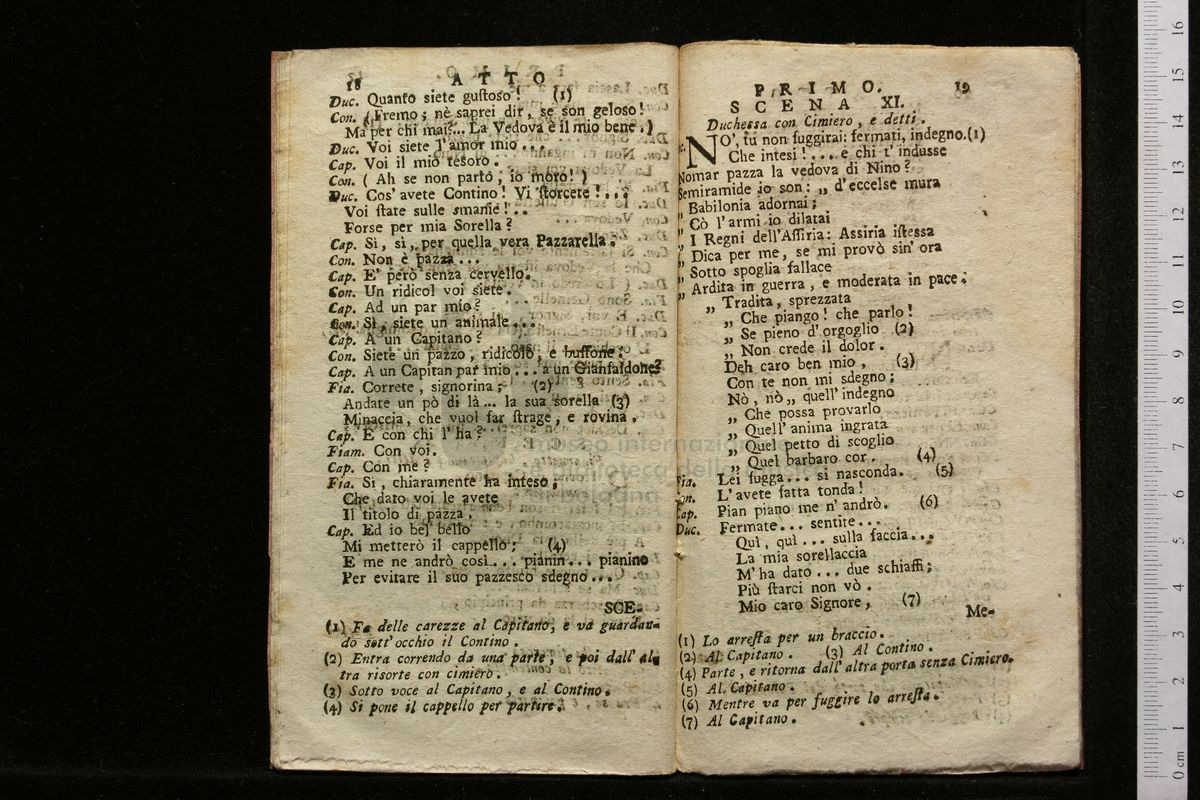 18 ATTO
Duc. Quanto siete guſtoso! (1)
Con. (Fremo; nè saprei dir, se son geloso!
Ma per chi mai?... La Vedova è il mio bene.)
Duc. Voi siete l'amor mio...
Cap. Voi il mio tesoro.
Con. (Ah se non parto, io moro!)
Duc. Cos' avete Contino! Vi ſtorcete!...
Voi ſtate sulle smanie!..
Forse per mia Sorella?
Cap. Sì, sì, per quella vera Pazzarella.
Con. Non è pazza...
Cap. E' però senza cervello.
Con. Un ridicol voi siete.
Cap. Ad un par mio?
Con. Sì, siete un animale...
Cap. A un Capitano?
Con. Siete un pazzo, ridicolo, e buffone.
Cap. A un Capitan par mio... a un Gianfaldone?
Fia. Correte, signorina; (2)
Andate un pò di là... la sua sorella (3)
Minaccia, che vuol far ſtrage, e rovina.
Cap. E con chi l'ha?
Fiam. Con voi.
Cap. Con me?
Fia. Si, chiaramente ha inteso,
Che dato voi le avete
Il titolo di pazza.
Cap. Ed io bel bello
Mi metterò il cappello; (4)
E me ne andrò così... pianin... pianino
Per evitare il suo pazzesco sdegno...
SCE-
(1) Fa delle carezze al Capitano, e va guardan-
do sott'occhio il Contino.
(2) Entra correndo da una parte, e poi dall' al-
tra risorte con cimiero.
(3) Sotto voce al Capitano, e al Contino.
(4) Si pone il cappello per partire.
PRIMO. 19
SCENA XI.
Duchessa con Cimiero, e detti.
NO', tu non fuggirai: fermati, indegno.(1)
Che intesi!.... e chi t' indusse
Nomar pazza la vedova di Nino?
Semiramide io son: „ d'eccelse mura
" Babilonia adornai;
" Cò l'armi io dilatai
" I Regni dell'Aſſiria: Assiria iſtessa
" Dica per me, se mi provò sin' ora
" Sotto spoglia fallace
" Ardita in guerra, e moderata in pace.
„ Tradita, sprezzata
„ Che piango! che parlo!
„ Se pieno d'orgoglio (2)
„ Non crede il dolor.
Deh caro ben mio, (3)
Con te non mi sdegno;
Nò, nò „ quell'indegno
„ Che possa provarlo
„ Quell' anima ingrata
„ Quel petto di scoglio
„ Quel barbaro cor. (4)
Fia. Lei fugga... si nasconda. (5)
Con. L'avete fatta tonda!
Cap. Pian piano me n' andrò. (6)
Duc. Fermate... sentite...
Quì, quì... sulla faccia...
La mia sorellaccia
M'ha dato... due schiaffi;
Più ſtarci non vò.
Mio caro Signore, (7)
Me-
(1) Lo arreſta per un braccio.
(2) Al Capitano. (3) Al Contino.
(4) Parte, e ritorna dall'altra porta senza Cimiero.
(5) Al Capitano.
(6) Mentre va per fuggire lo arreſta.
(7) Al Capitano.
museo internazionale
e biblioteca della musica
di bologna
0 cm 1 2 3 4 5 6 7 8 9 10 11 12 13 14 15 16